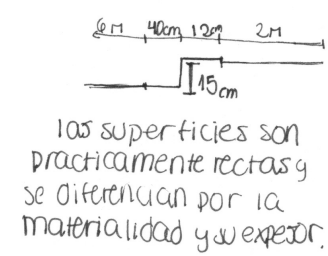 6M 40cm 12cm 2M
15cm
las superficies son
practicamente rectas y
se diferencian por la
materialidad y su expesor.